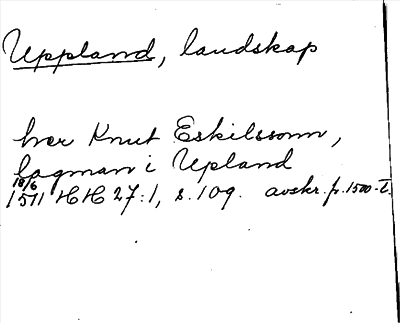 Uppland, landskap
her Knut Eskilsson,
lagman i Upland
18/6
1511 HH 27:1, s. 109. avskr. fr. 1500-t.